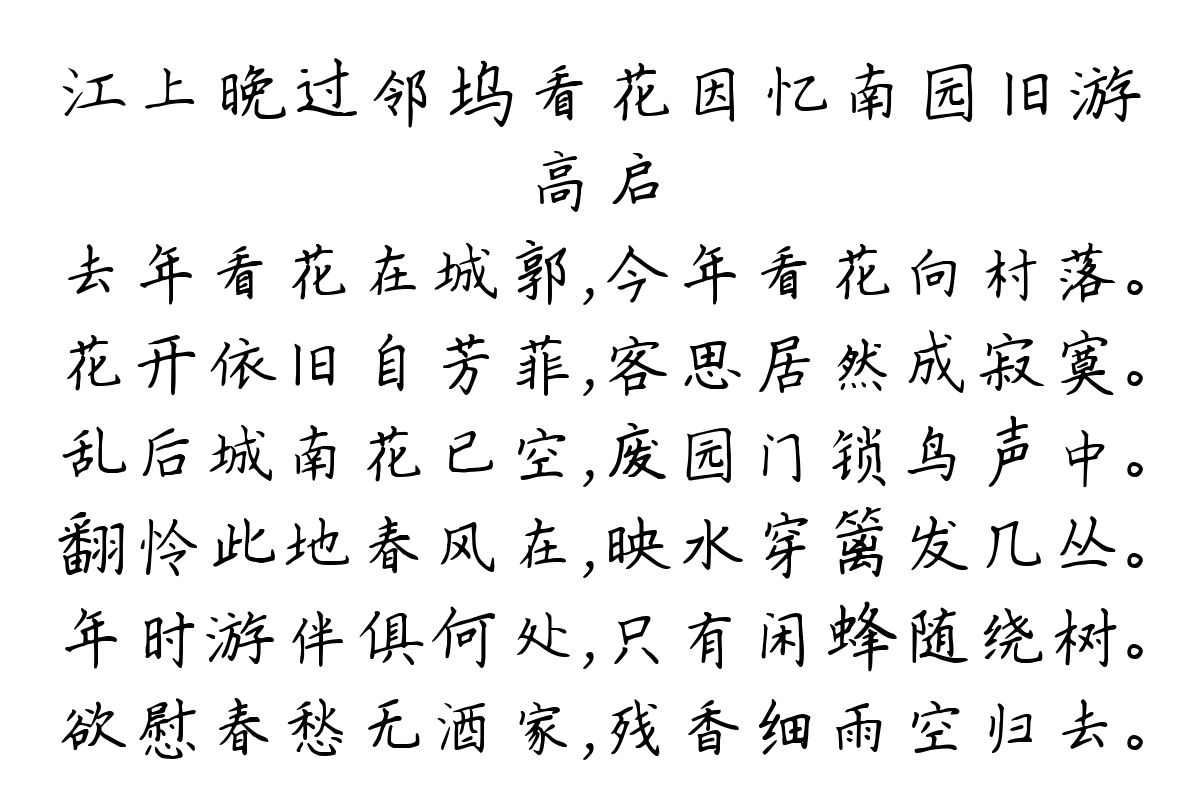 江上晚过邻坞看花因忆南园旧游
高启
去年看花在城郭,今年看花向村落。
花开依旧自芳菲,客思居然成寂寞。
乱后城南花已空,废园门锁鸟声中。
翻怜此地春风在,映水穿篱发几丛。
年时游伴俱何处,只有闲蜂随绕树。
欲慰春愁无酒家,残香细雨空归去。